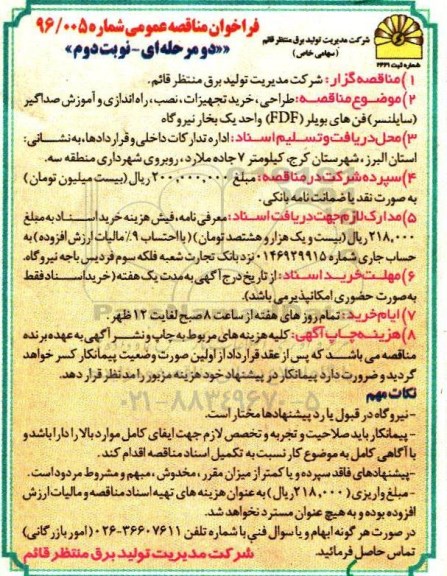 فراخوان مناقصه عمومی شماره ۹۶/۰۰۵
««دو مرحله‌ای - نوبت دوم»
شرکت مدیریت تولید برق منتظر قائم
(سهامی خاص)
شماره ثبت ۲۴۴۱
۱) مناقصه گزار: شرکت مدیریت تولید برق منتظر قائم.
۲) موضوع مناقصه: طراحی، خرید تجهیزات، نصب، راه اندازی و آموزش صداگیر
(سایلنسر) فن های بویلر (FDF) واحد یک بخار نیروگاه
۳) محل دریافت و تسلیم اسناد: اداره تدارکات داخلی و قراردادها، به نشانی:
استان البرز، شهرستان کرج، کیلومتر ۷ جاده ملارد، روبروی شهرداری منطقه سه.
۴) سپرده شرکت در مناقصه: مبلغ ۲۰۰,۰۰۰,۰۰۰ ریال (بیست میلیون تومان)
به صورت نقد یا ضمانت نامه بانکی.
۵) مدارک لازم جهت دریافت اسناد: معرفی نامه، فیش هزینه خرید اسناد به مبلغ
۲۱۸,۰۰۰ ریال (بیست و یک هزار و هشتصد تومان) (با احتساب ۹٪ مالیات ارزش افزوده) به
حساب جاری شماره ۰۱۴۶۹۲۹۹۱۵ نزد بانک تجارت شعبه فلکه سوم فردیس باجه نیروگاه.
۶) مهلت خرید اسناد: از تاریخ درج آگهی به مدت یک هفته (خرید اسناد فقط
به صورت حضوری امکانپذیر می باشد).
۷) ایام خرید: تمام روز های هفته از ساعت ۸ صبح لغایت ۱۲ ظهر.
۸) هزینه چاپ آگهی: کلیه هزینه های مربوط به چاپ و نشر آگهی به عهده برنده
مناقصه می باشد که پس از عقد قرارداد از اولین صورت وضعیت پیمانکار کسر خواهد
گردید و ضرورت دارد پیمانکار در پیشنهاد خود هزینه مزبور را مدنظر قرار دهد.
نکات مهم
- نیروگاه در قبول یا رد پیشنهادها مختار است.
- پیمانکار باید صلاحیت و تجربه و تخصص لازم جهت ایفای کامل موارد بالا را دارا باشد و
با آگاهی کامل به موضوع کار نسبت به تکمیل اسناد مناقصه اقدام کند.
- پیشنهادهای فاقد سپرده و یا کمتر از میزان مقرر، مخدوش، مبهم و مشروط مردود است.
- مبلغ واریزی (۲۱۸,۰۰۰ ریال) به عنوان هزینه های تهیه اسناد مناقصه و مالیات ارزش
افزوده بوده و به هیچ عنوان مسترد نخواهد شد.
در صورت هر گونه ابهام و یا سوال فنی با شماره تلفن ۳۶۶۰۷۶۱۱-۰۲۶ (امور بازرگانی)
تماس حاصل فرمائید.
شرکت مدیریت تولید برق منتظر قائم
۰۲۱-۸۸۳۴۹۶۷۰-۵